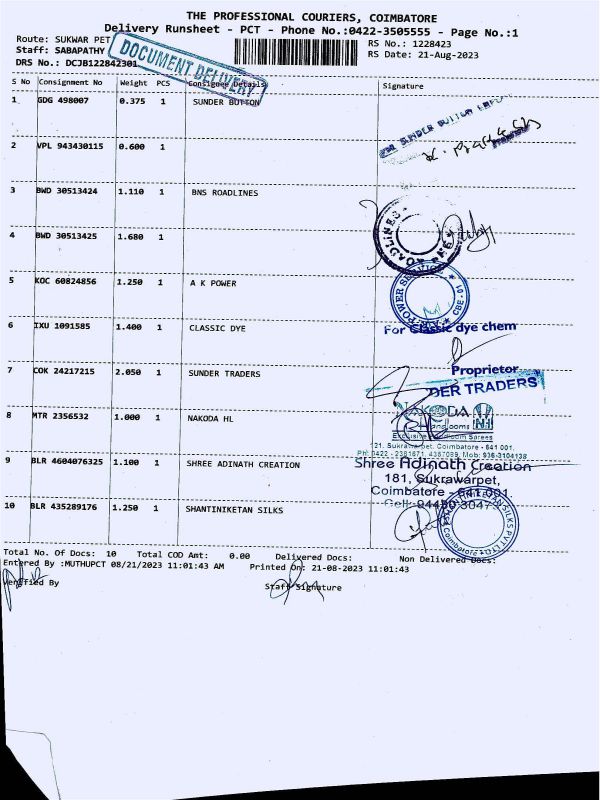 THE PROFESSIONAL COURIERS, COIMBATORE
Delivery Runsheet - PCT - Phone No.:0422-3505555 - Page No.:1
Route: SUKWAR PET
RS No.: 1228423
Staff: SABAPATHY
RS Date: 21-Aug-2023
DRS No.: DCJB122842301
DOCUMENT DELIVERY
S No Consignment No Weight PCS Consignee Details Signature
1 GDG 498007 0.375 1 SUNDER BUTTON
SUNDER BUTTON
2 VPL 943430115 0.600 1
3 BWD 30513424 1.110 1 BNS ROADLINES
4 BWD 30513425 1.680 1
5 KOC 60824856 1.250 1 A K POWER
6 IXU 1091585 1.400 1 CLASSIC DYE
For Classic dye chem
Proprietor
7 COK 24217215 2.050 1 SUNDER TRADERS
DER TRADERS
8 MTR 2356532 1.000 1 NAKODA HL
NAKODA
Handlooms
Exclusive Handloom Sarees
121, Sukrawarpet, Coimbatore - 641 001.
Ph: 0422 - 2381671, 4367089, Mob: 936-3104138
9 BLR 4604076325 1.100 1 SHREE ADINATH CREATION
Shree Adinath Creation
181, Sukrawarpet,
Coimbatore - 641 001.
Cell: 94430 30473
10 BLR 435289176 1.250 1 SHANTINIKETAN SILKS
Total No. Of Docs: 10 Total COD Amt: 0.00 Delivered Docs: Non Delivered Docs:
Entered By :MUTHUPCT 08/21/2023 11:01:43 AM Printed On: 21-08-2023 11:01:43
Verified By Staff Signature